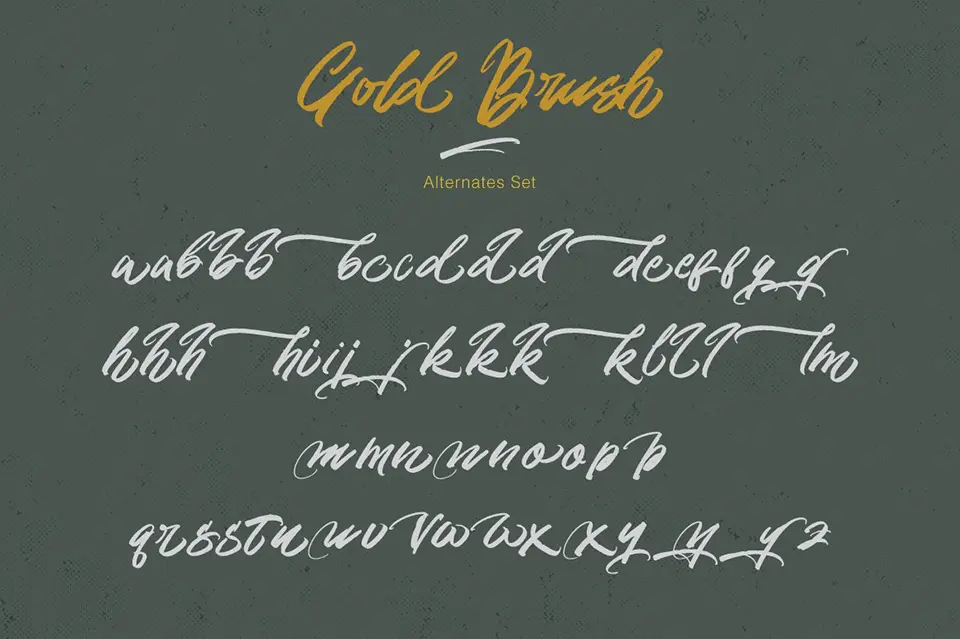 Gold Brush
Alternates Set
wabbbb bccdddd deeffgg
hhhh hiijjkkkk kllll lm
mmnnnoopp
qrssstuuvvwwxxyyyz